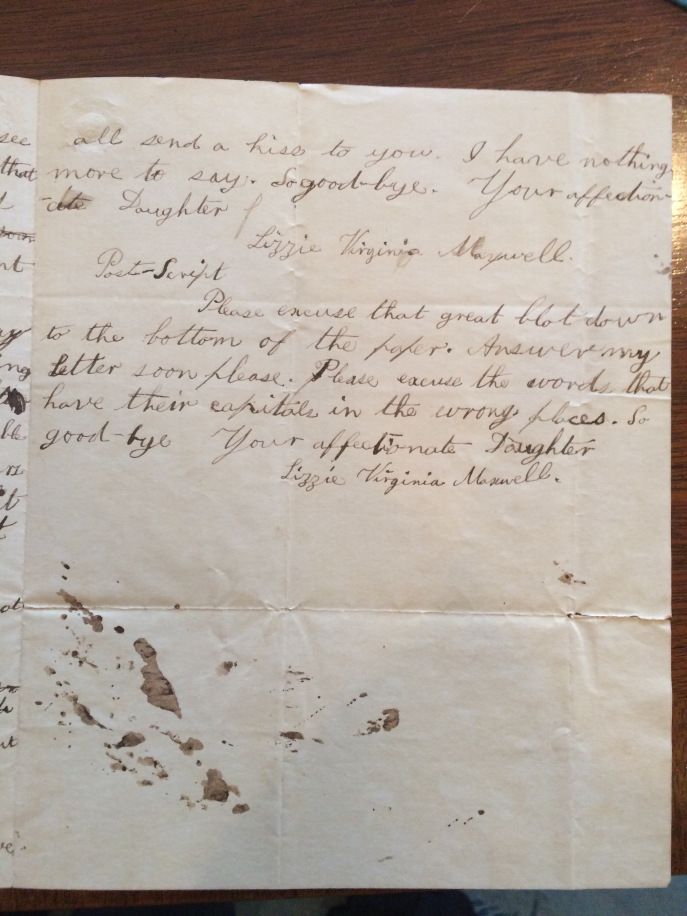 all send a kiss to you. I have nothing
more to say. So good-bye. Your affection-
-ate Daughter
Lizzie Virginia Maxwell.
Post-Script
Please excuse that great blot down
to the bottom of the paper. Answer my
letter soon please. Please excuse the words that
have their capitals in the wrong places. So
good-bye Your affectionate Daughter
Lizzie Virginia Maxwell.
see
that